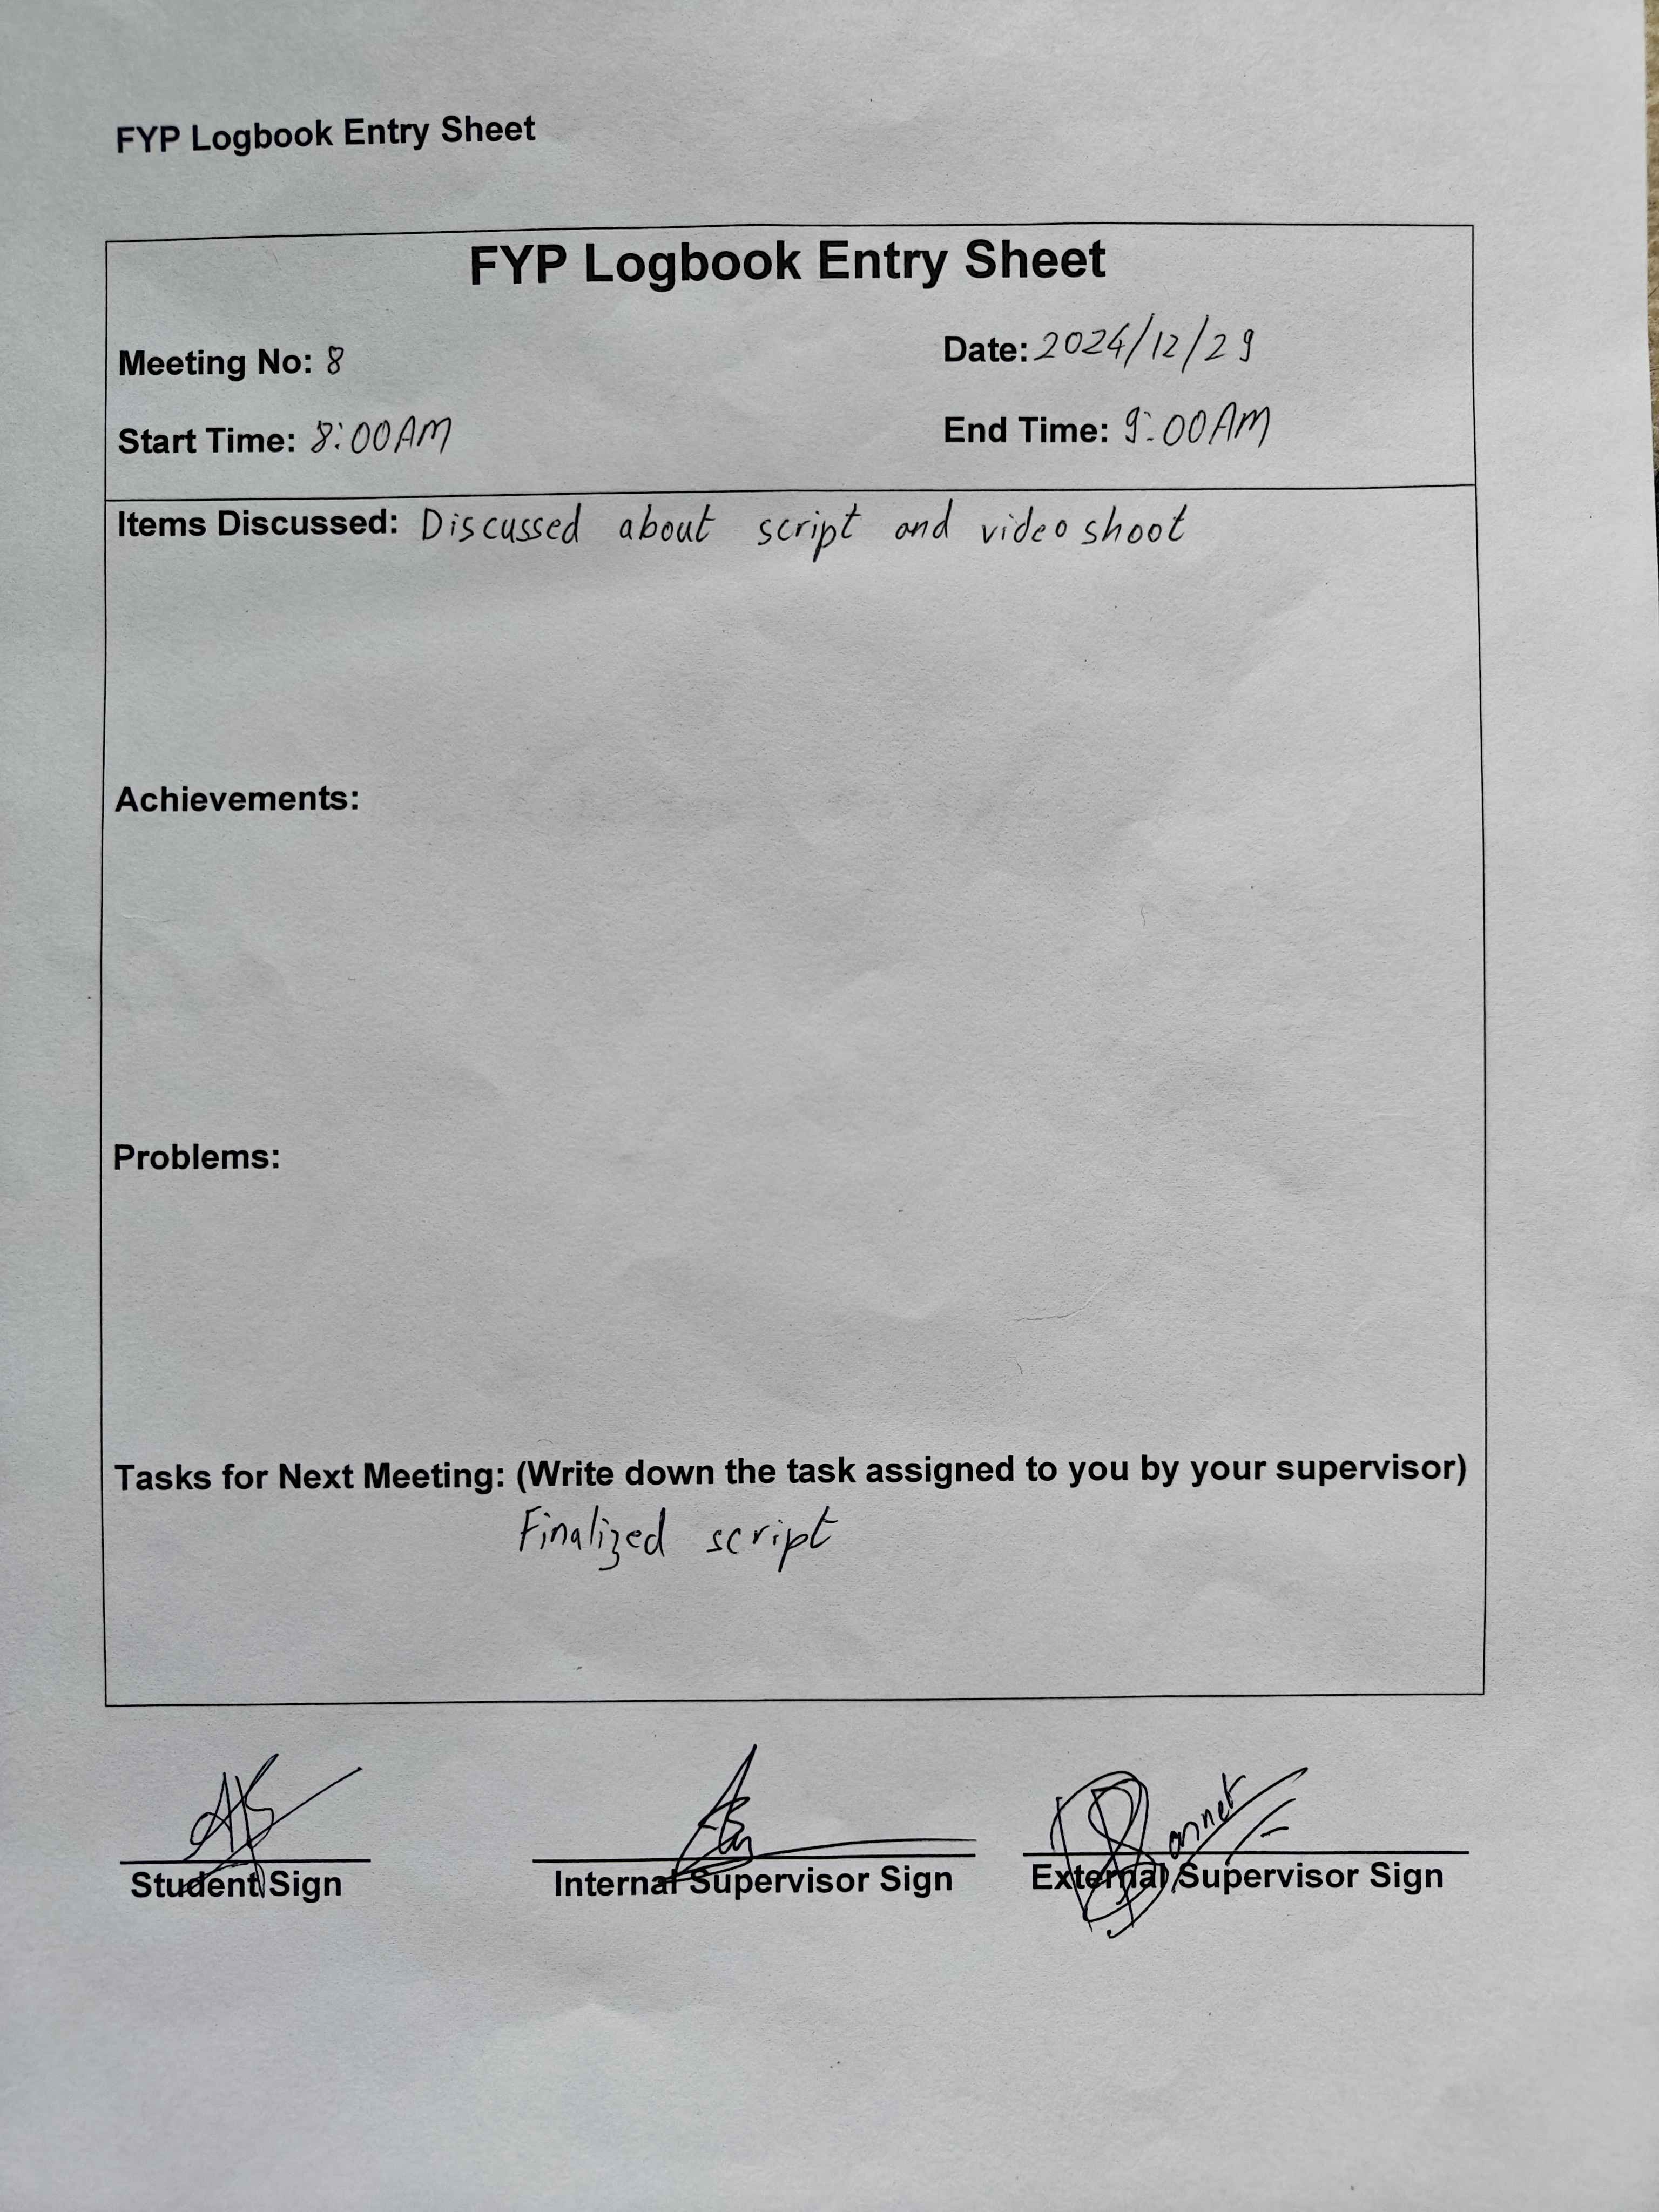 FYP Logbook Entry Sheet
FYP Logbook Entry Sheet
Meeting No: 8
Date: 2024/12/29
Start Time: 8:00AM
End Time: 9:00AM
Items Discussed: Discussed about script and video shoot
Achievements:
Problems:
Tasks for Next Meeting: (Write down the task assigned to you by your supervisor)
Finalized script
Student Sign
Internal Supervisor Sign
External Supervisor Sign